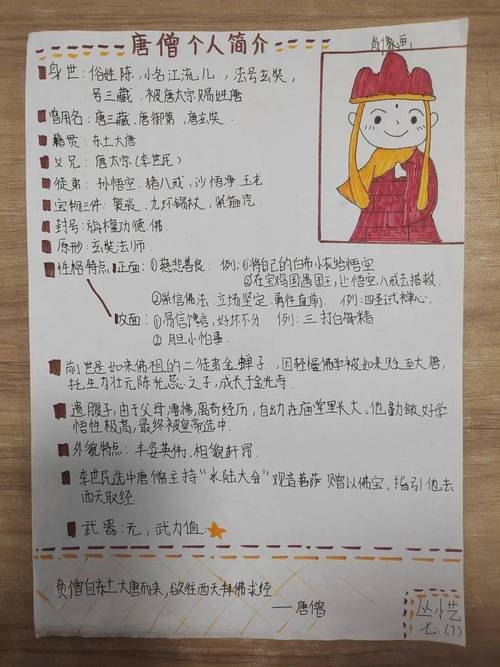 唐僧个人简介
肖像画
身世：俗姓陈，小名江流儿，法号玄奘，
号三藏．被唐太宗赐姓唐
曾用名：唐三藏．唐御弟，唐玄奘．
籍贯：东土大唐
义兄：唐太宗（李世民）
徒弟：孙悟空．猪八戒．沙悟净．玉龙
宝物三件：袈裟．九环锡杖，紧箍咒．
封号：旃檀功德佛
原形：玄奘法师．
性格特点 正面：①慈悲善良． 例：①将自己的白布小衣给悟空
②在宝鸡国遇国王，让悟空，八戒去搭救．
②崇信佛法，立场坚定．勇往直前． 例：四圣试禅心．
反面：①易信馋言，好坏不分 例：三打白骨精
② 胆小怕事．
前世是如来佛祖的二徒弟金蝉子，因轻慢佛学被如来贬至大唐，
托生为状元陈光蕊之子，成长于金光寺．
遗腹子，由于父母凄惨，离奇经历，自幼在庙堂里长大．他勤敏好学
悟性极高，最终被皇帝选中．
外貌特点：丰姿英伟．相貌轩昂．
李世民选中唐僧主持“水陆大会”观音菩萨 赠以佛宝，指引他去
西天取经
武器：无，武力值：
贫僧自东土大唐而来，欲往西天拜佛求经
——唐僧
丛小艺
七．(1)